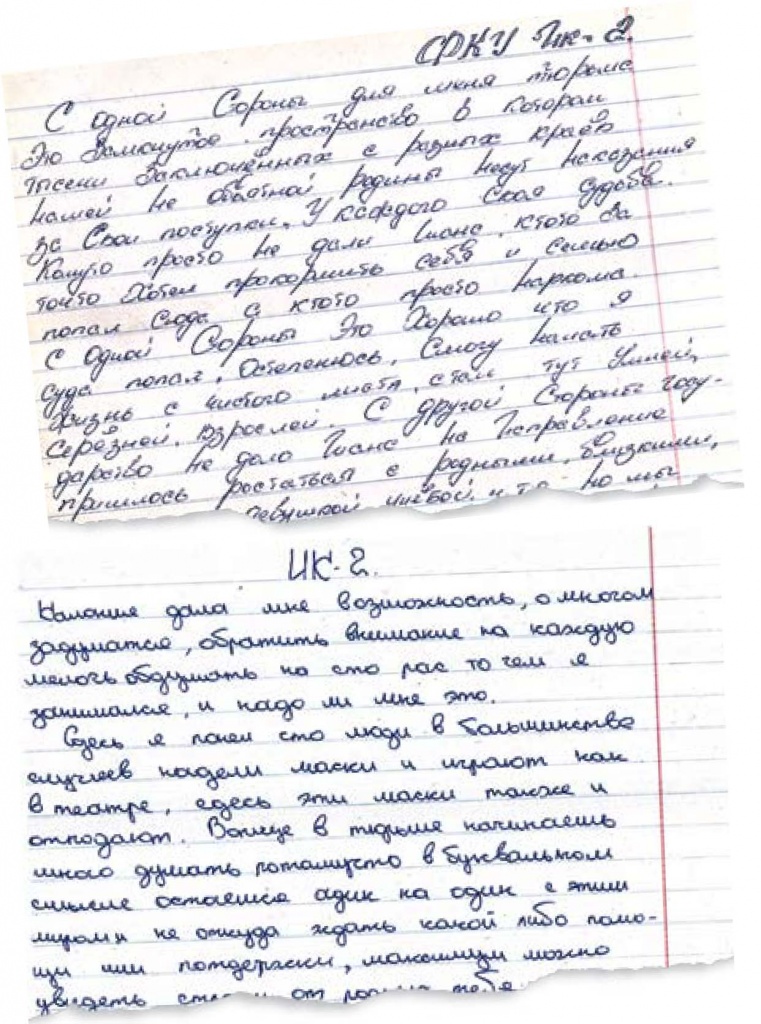 СФКУ ИК-2.
С одной Сороны для меня тюрома
Это Замкнутое пространство в котором
тысечи Заключённых с разных краёв
нашей не обьятной родины несут наказания
за Свои поступки. У каждого Своя судьба.
Комуто просто не дали Шанс, ктото За
тоито Хотел прокормить себя и семью
попал Сюда а ктото просто наркома.
С одной Сороны Это Хорошо что я
Суда попал, Остепенюсь, Смогу начать
Жизнь с чистого листа, стал тут Умней,
Серёзней, взрослей. С другой Стороны госу-
дарсво не дало Шанс на Исправление
пришлось ростаться с родными, близкими,
девушкой учёбой и т.д. но мы
ИК-2.
Калония дала мне возможность, о многом
задуматся, обратить внимание на каждую
мелочь обдумать на сто рас то чем я
занимался, и надо ли мне это.
Здесь я понел што люди в большинстве
случиев надели маски и играют как
в театре, здесь эти маски также и
отподают. Вопще в тюрьме начинаешь
много думать потамушто в буквальном
смысле остаешся адин на один с этим
миром и не откуда ждать какой либо помо-
щи или потдержки, максимум можно
увидеть от тебя